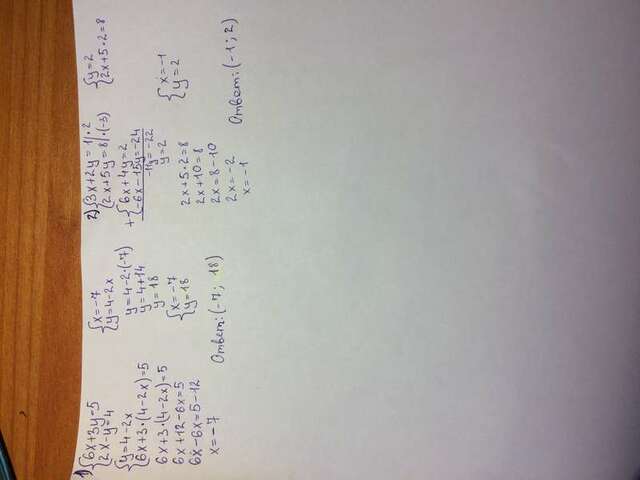 1) {6x+3y=5
{2x-y=4
{y=4-2x
{6x+3·(4-2x)=5
6x+3·(4-2x)=5
6x+12-6x=5
6x-6x=5-12
x=-7
{x=-7
{y=4-2x
y=4-2·(-7)
y=4+14
y=18
{x=-7
{y=18
Ответ: (-7; 18)
2) {3x+2y=1|·2
{2x+5y=8|·(-3)
+ {6x+4y=2
{-6x-15y=-24
-11y=-22
y=2
2x+5·2=8
2x+10=8
2x=8-10
2x=-2
x=-1
{y=2
{2x+5·2=8
{x=-1
{y=2
Ответ: (-1; 2)